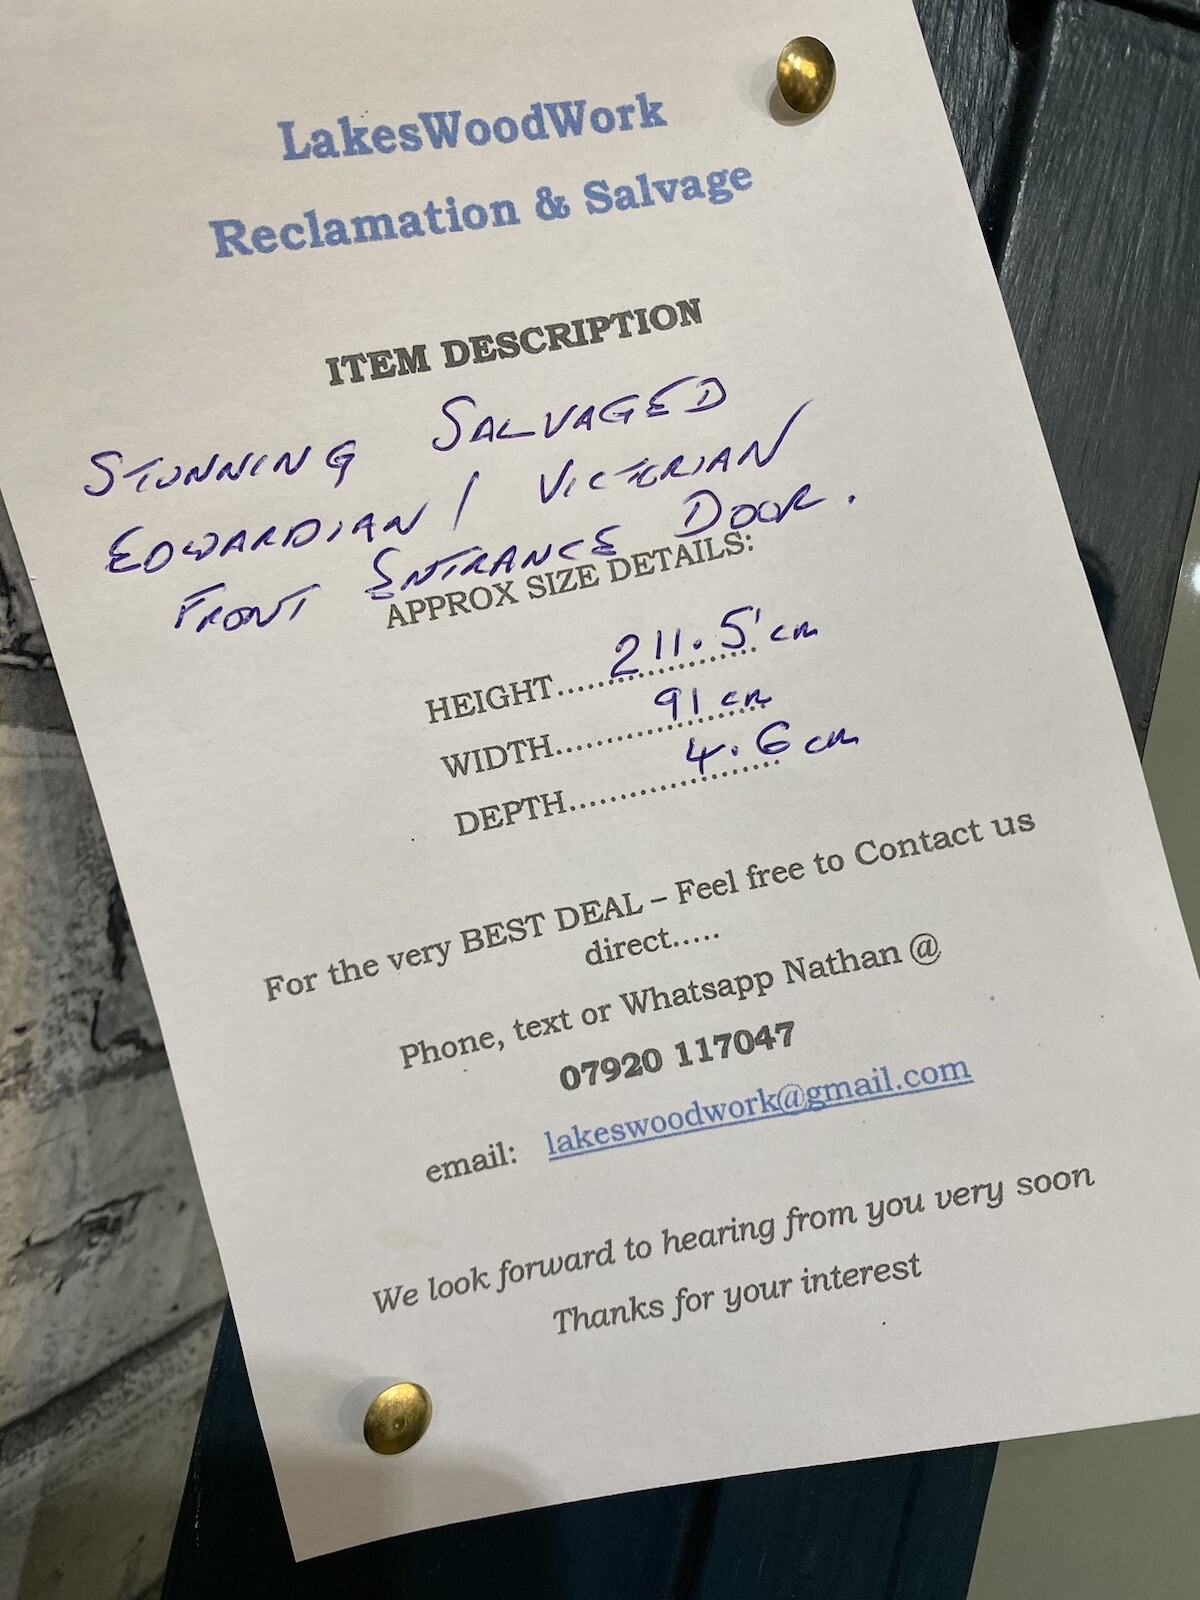 LakesWoodWork
Reclamation & Salvage
ITEM DESCRIPTION
STUNNING SALVAGED
EDWARDIAN / VICTORIAN
FRONT ENTRANCE DOOR.
APPROX SIZE DETAILS:
HEIGHT......211.5 cm
WIDTH......91 cm
DEPTH......4.6 cm
For the very BEST DEAL – Feel free to Contact us
direct.....
Phone, text or Whatsapp Nathan @
07920 117047
email: lakeswoodwork@gmail.com
We look forward to hearing from you very soon
Thanks for your interest